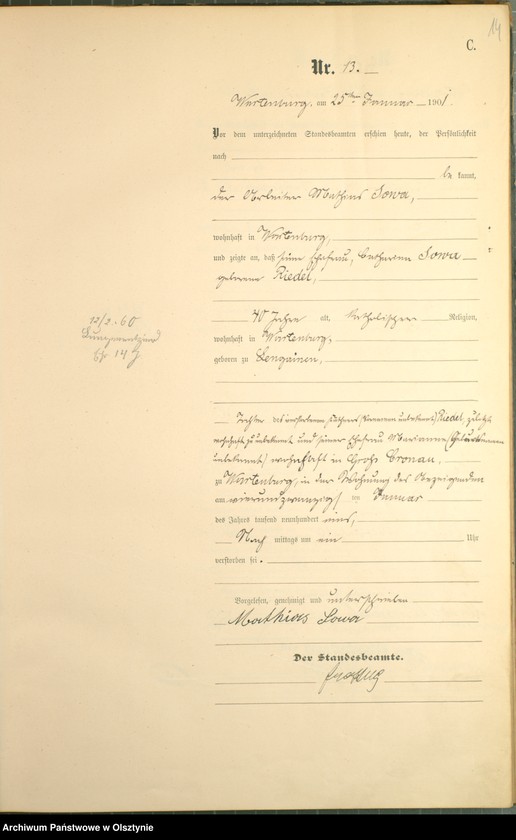 14
C.
Nr. 13.
Wartenburg, am 25ten Januar 1901.
Vor dem unterzeichneten Standesbeamten erschien heute, der Persönlichkeit
nach
be kannt,
der Arbeiter Mathias Sowa,
wohnhaft in Wartenburg,
und zeigte an, daß seine Ehefrau, Catharina Sowa
geborene Riedel,
40 Jahre alt, katholischer Religion,
wohnhaft in Wartenburg,
geboren zu Lengainen,
12/2. 60
14
Tochter des verstorbenen (Vornamen unbekannt) Riedel, zuletzt
wohnhaft zu unbekannt und seiner Ehefrau Marianne (Geburtsnamen
unbekannt) wohnhaft in Groß Cronau,
zu Wartenburg, in der Wohnung des Anzeigenden
am vierundzwanzigsten Januar
des Jahres tausend neunhundert eins,
Nach mittags um ein Uhr
verstorben sei.
Vorgelesen, genehmigt und unterschrieben
Mathias Sowa
Der Standesbeamte.
Archiwum Państwowe w Olsztynie